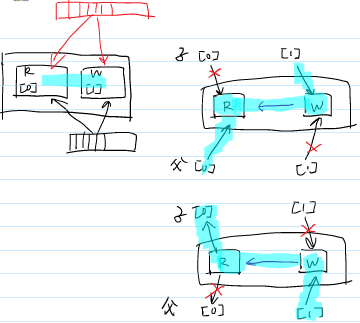 R W
[0] [1]
子 [0] [1]
R W
父 [0] [1]
子 [0] [1]
R W
父 [0] [1]